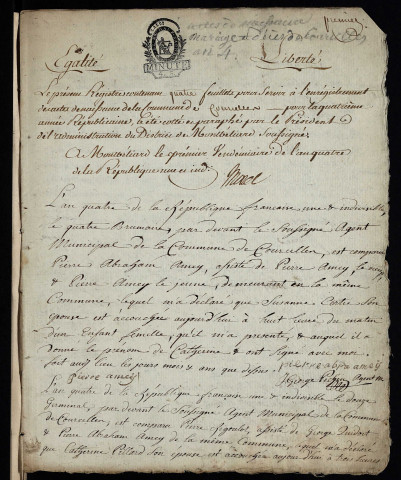 premier
actes de naissance
an 4.
Egalité
MINUTE
Liberté
Le présent Registre contenant quatre feuillets pour servir à l'enregistrement
des actes de naissance de la commune de Courcelles pour la quatrième
année Républicaine, a été cotté et paraphé par le Président
de l'administration du District de Montbéliard Soussigné
A Montbéliard le premier Vendemiaire de l'an quatre
de la République une et ind.
L'an quatre de la République française une & indivisible
le quatre Brumaire, par devant le Soussigné Agent
Municipal de la Commune de Courcelles, est comparu
Pierre Abraham Amey, assisté de Pierre Amey le vieux
& Pierre Amey le jeune, demeurant en la même
Commune, lequel m'a déclaré que Susanne Son
épouse est accouchée aujourd'hui à huit heures du matin
d'un Enfant femelle, qu'il m'a présenté, & auquel il a
donné le prénom de Catherine & ont signé avec moi
fait aux lieu les jours mois & ans que dessus
Pierre abra amey
Pierre amey
George Agent
L'an quatre de la République française une & indivisible le douze
Germinal, par devant le Soussigné Agent Municipal de la Commune
de Courcelles, est comparu Pierre assisté de George
& Pierre Abraham Amey de la même Commune, lequel m'a déclaré
que Catherine Son épouse est accouchée aujourd'hui à trois heures